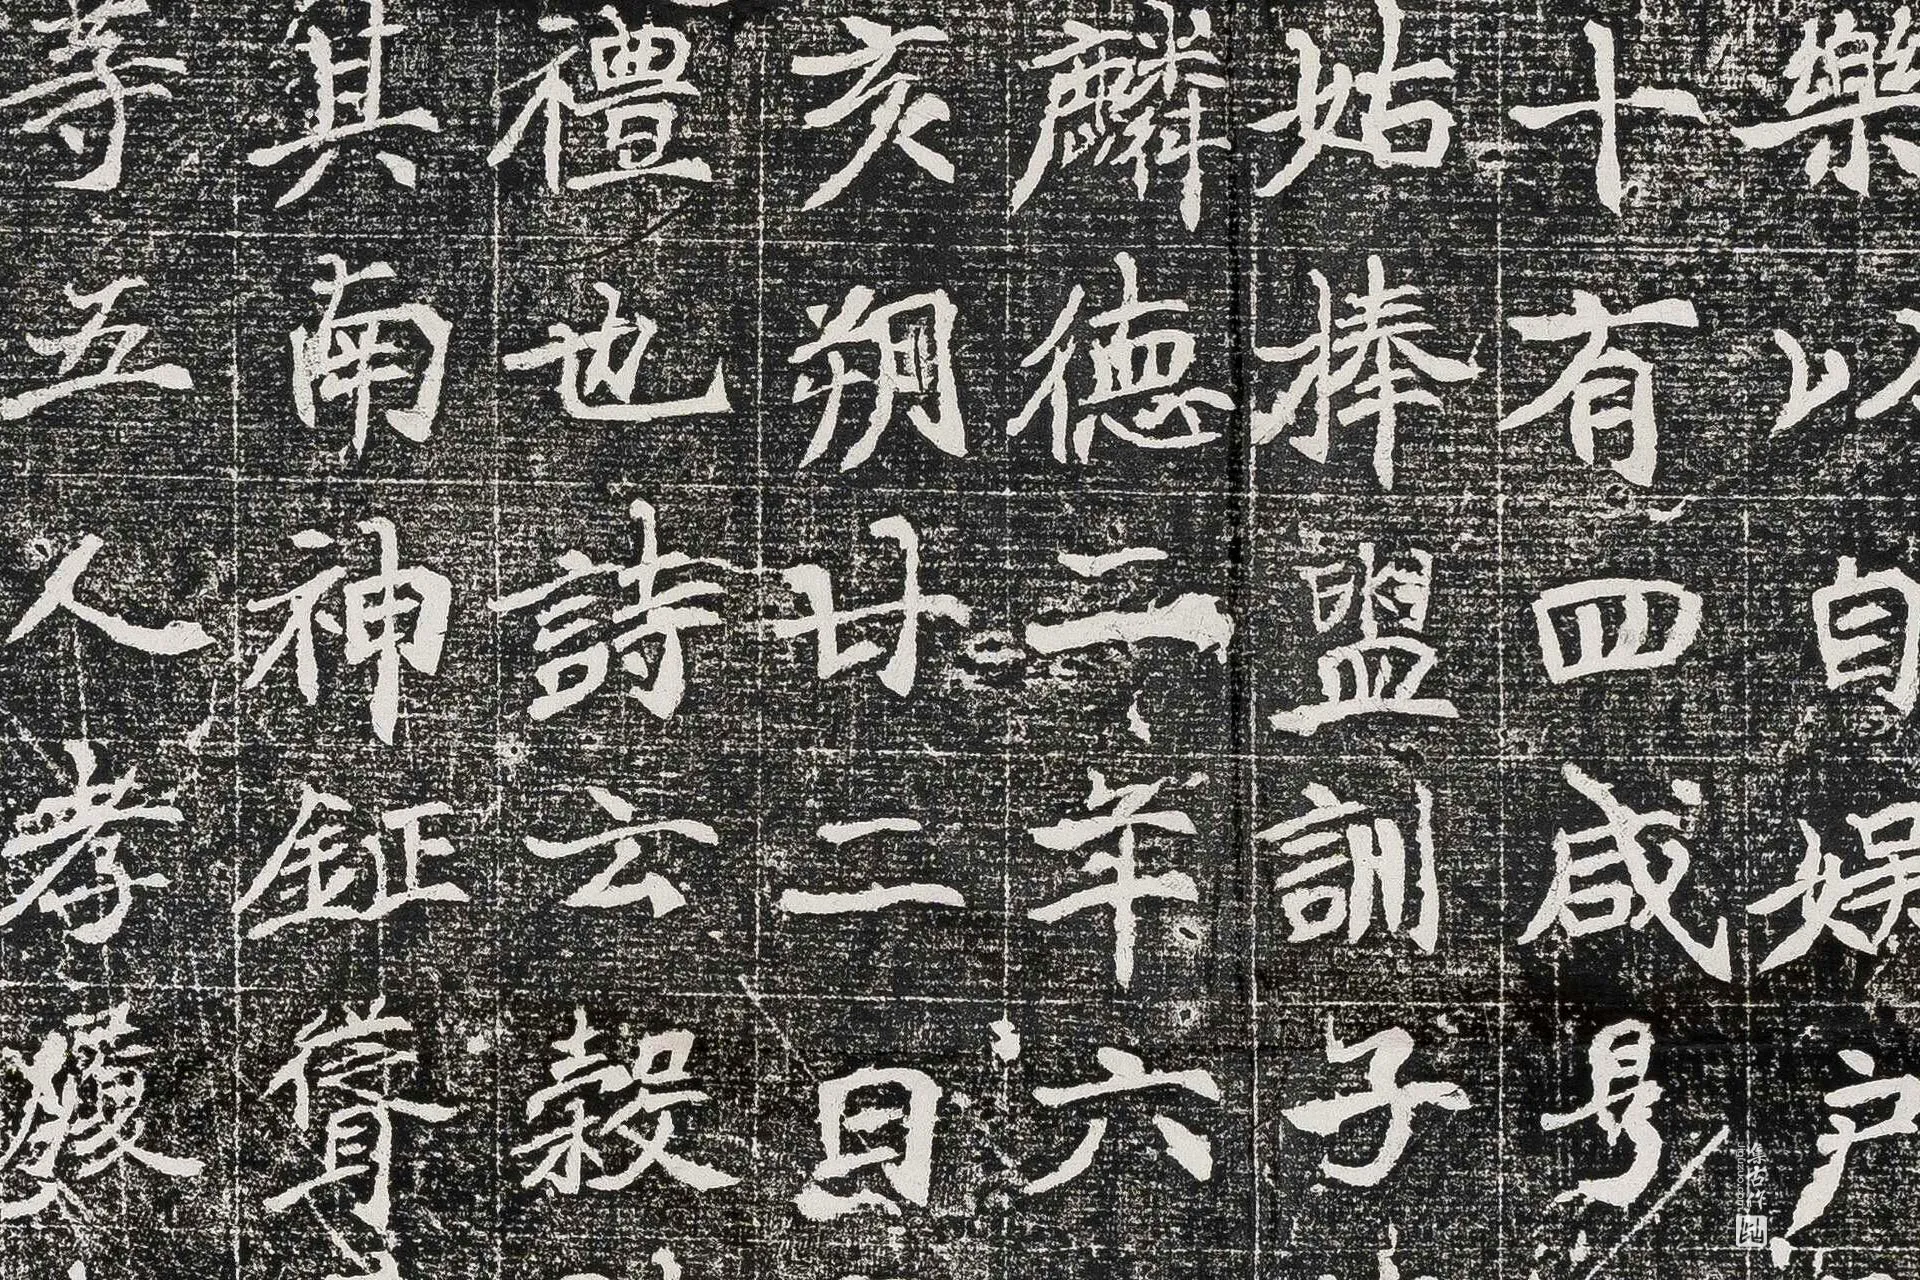 樂以自娛户
十有四咸号
姑捧盥訓子
麟德二年六
亥朔廿二日
禮也詩云穀
其南神鉦聳
等五人孝獲